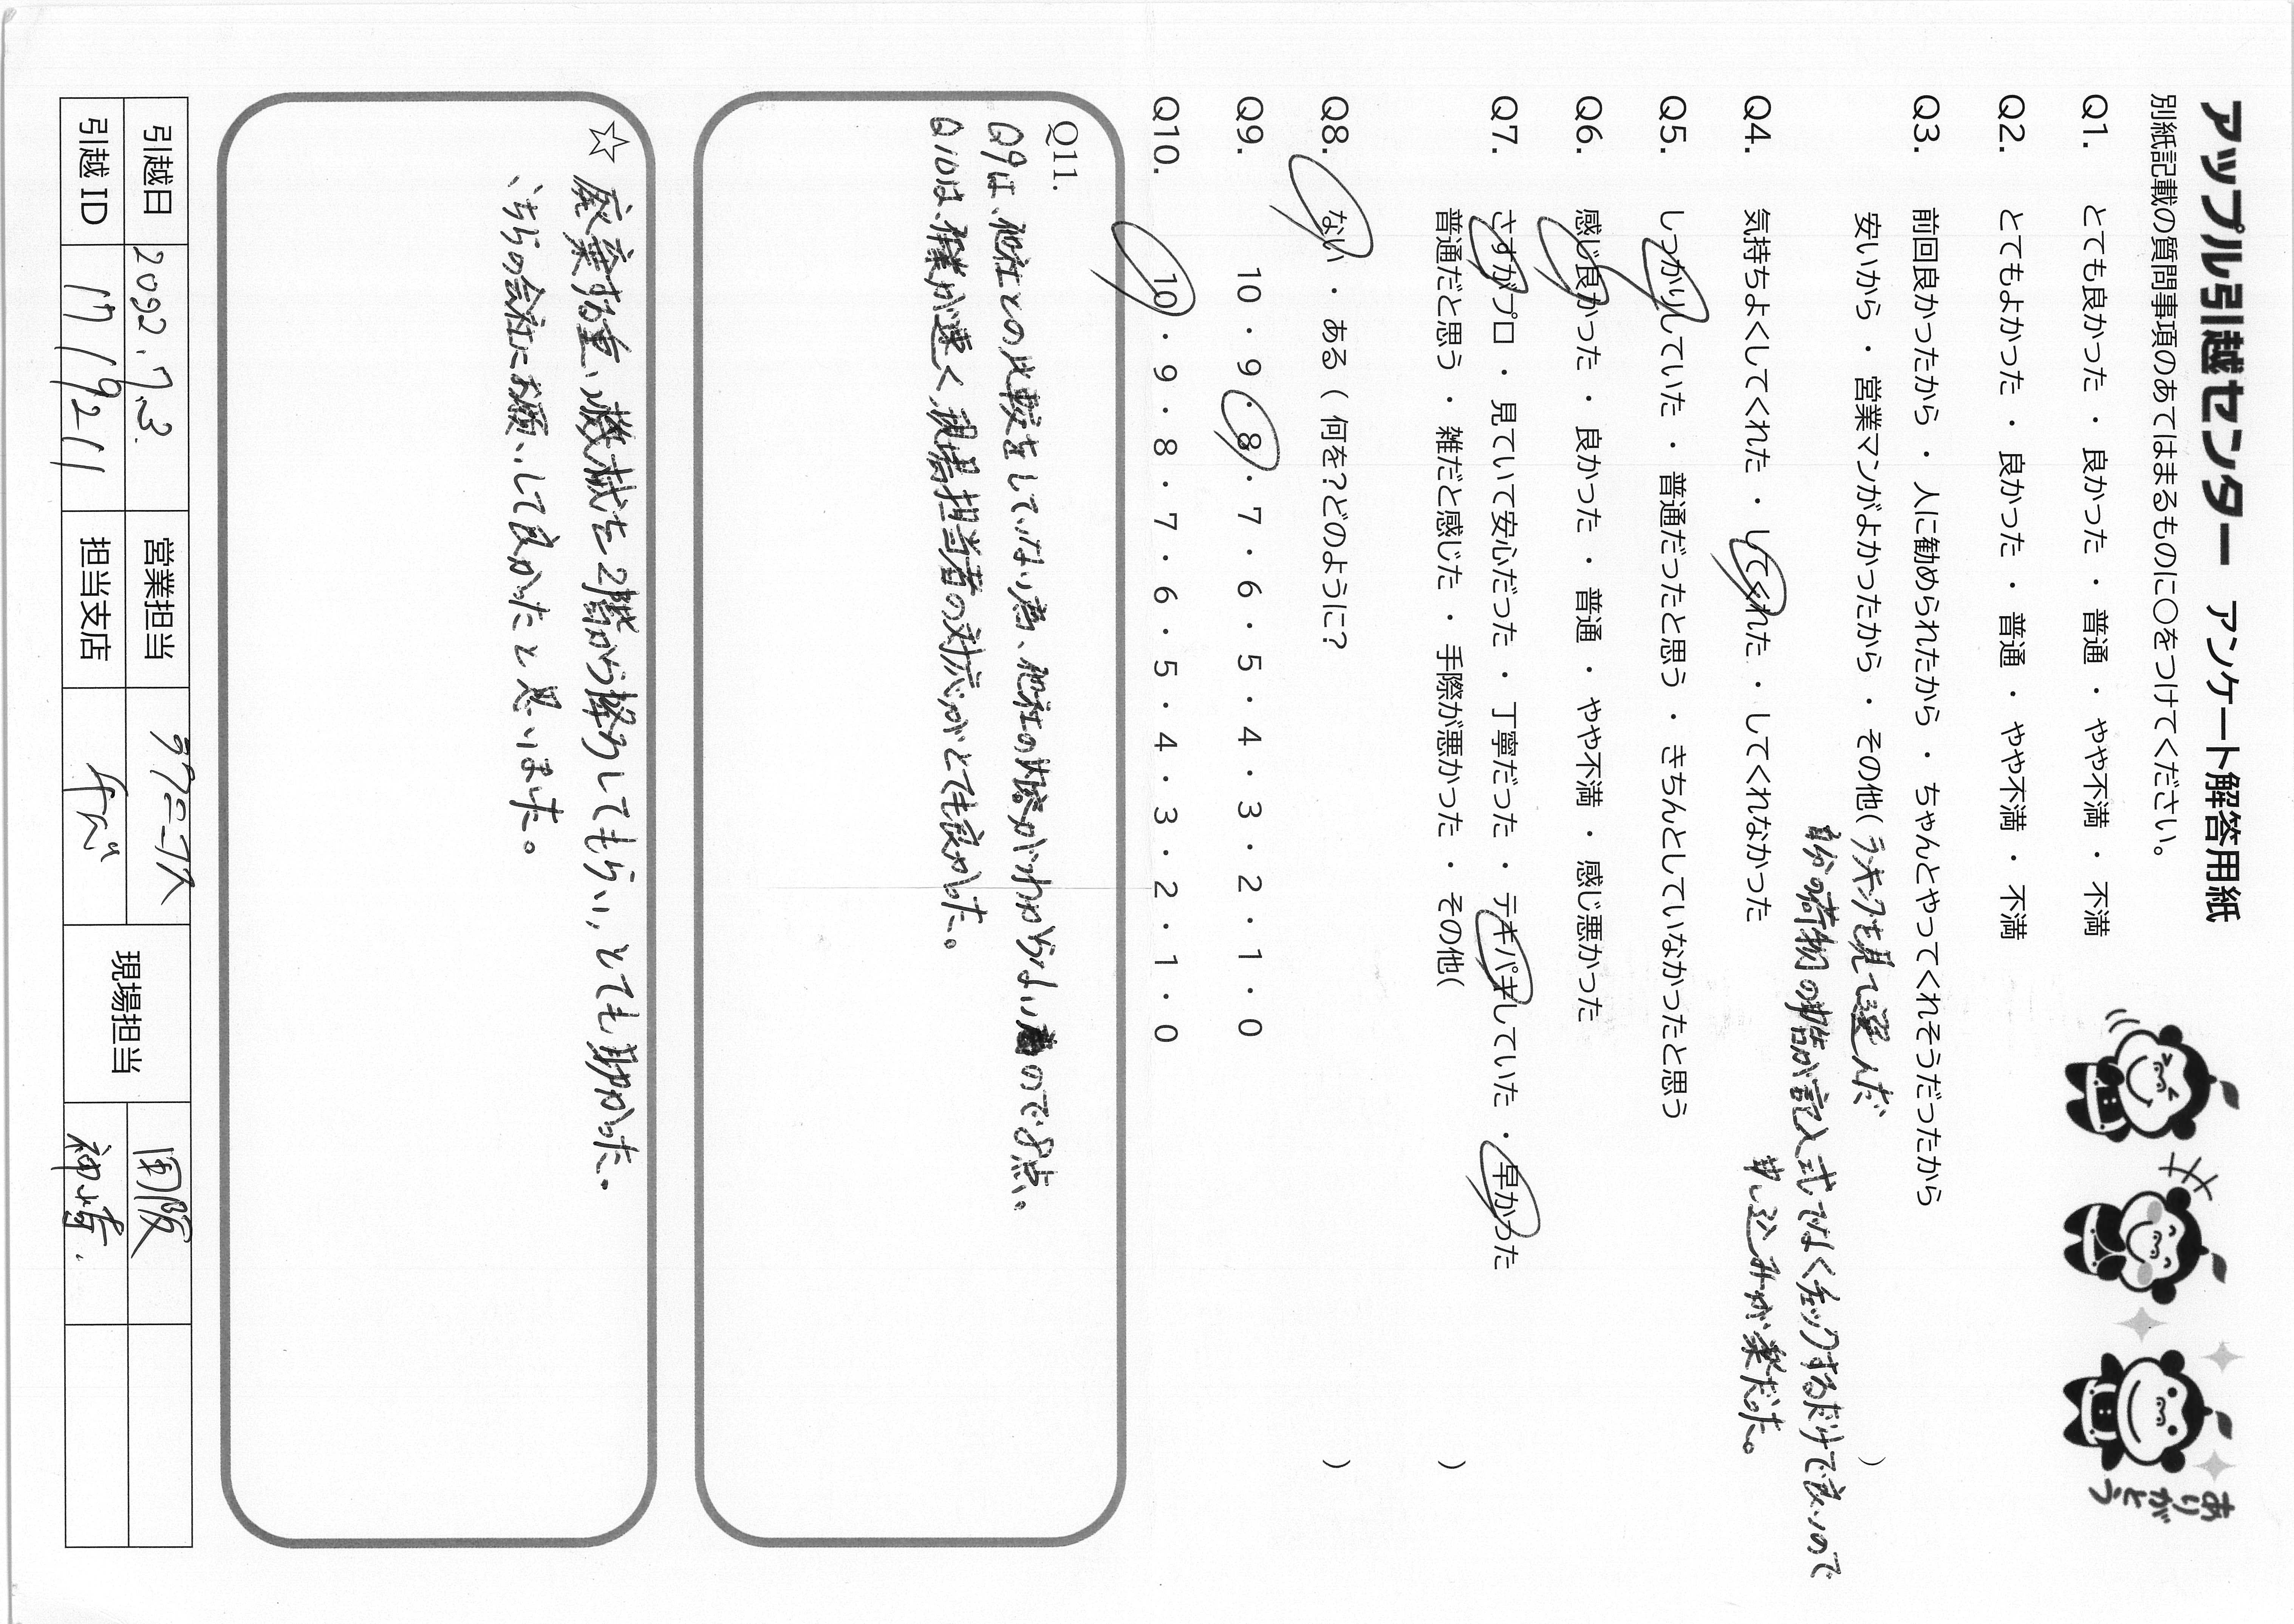 アップル引越センター アンケート解答用紙
別紙記載の質問事項のあてはまるものに○をつけてください。
Q1. とても良かった ・ 良かった ・ 普通 ・ やや不満 ・ 不満
Q2. とてもよかった ・ 良かった ・ 普通 ・ やや不満 ・ 不満
Q3. 前回良かったから ・ 人に勧められたから ・ ちゃんとやってくれそうだったから
安いから ・ 営業マンがよかったから ・ その他( ランキングを見て選んだ )
自分の荷物の申告が記入式ではなくチェックするだけで良いので
申しこみが楽だった。
Q4. 気持ちよくしてくれた ・ してくれた ・ してくれなかった
Q5. しっかりしていた ・ 普通だったと思う ・ きちんとしていなかったと思う
Q6. 感じ良かった ・ 良かった ・ 普通 ・ やや不満 ・ 感じ悪かった
Q7. さすがプロ ・ 見ていて安心だった ・ 丁寧だった ・ テキパキしていた ・ 早かった
普通だと思う ・ 雑だと感じた ・ 手際が悪かった ・ その他( )
Q8. ない ・ ある ( 何を?どのように? )
Q9. 10 ・ 9 ・ 8 ・ 7 ・ 6 ・ 5 ・ 4 ・ 3 ・ 2 ・ 1 ・ 0
Q10. 10 ・ 9 ・ 8 ・ 7 ・ 6 ・ 5 ・ 4 ・ 3 ・ 2 ・ 1 ・ 0
Q11.
Q9は、他社との比較をしていない為、他社の状態がわからないので8点、
Q10は、作業が速く、現場担当者の対応がとても良かった。
☆ 廃棄する重い機械を2階から降ろしてもらい、とても助かった。
こちらの会社にお願いして良かったと思いました。
引越日 2022.7.3. 営業担当 現場担当
引越ID 1719211 担当支店 千代 神崎.
ありがとう